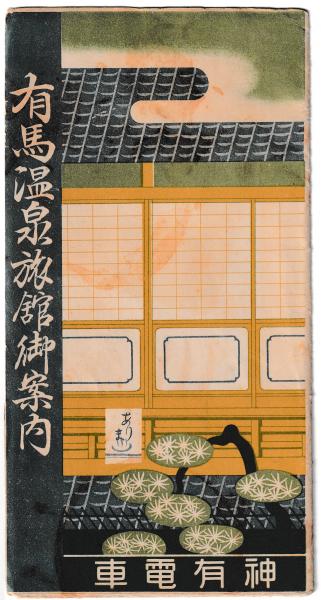 有馬温泉旅館御案内
ありま
神有電車